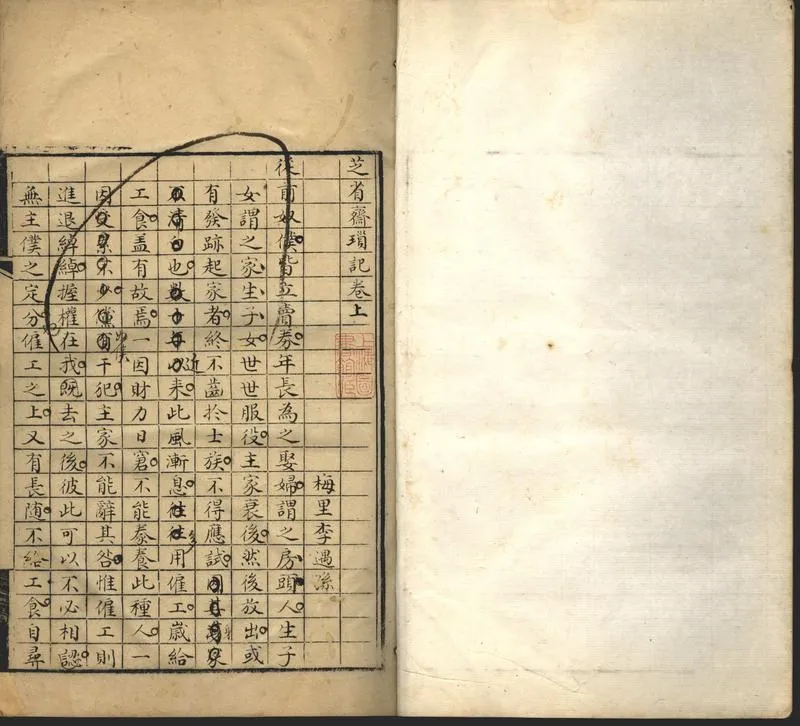 芝省齋瑣記卷上
梅里李遇孫
從前奴僕皆立賣券年長為之娶婦謂之房頭人生子
女謂之家生子女世世服役主家衰後然後放出或
有發跡起家者終不齒於士族不得應試
清白也近來此風漸息用僱工歲給
工食盖有故焉一因財力日窘不能豢養此種人一
因干犯主家不能辭其咎惟僱工則
進退綽綽握權在我旣去之後彼此可以不必相認
無主僕之定分僱工之上又有長隨不給工食自尋